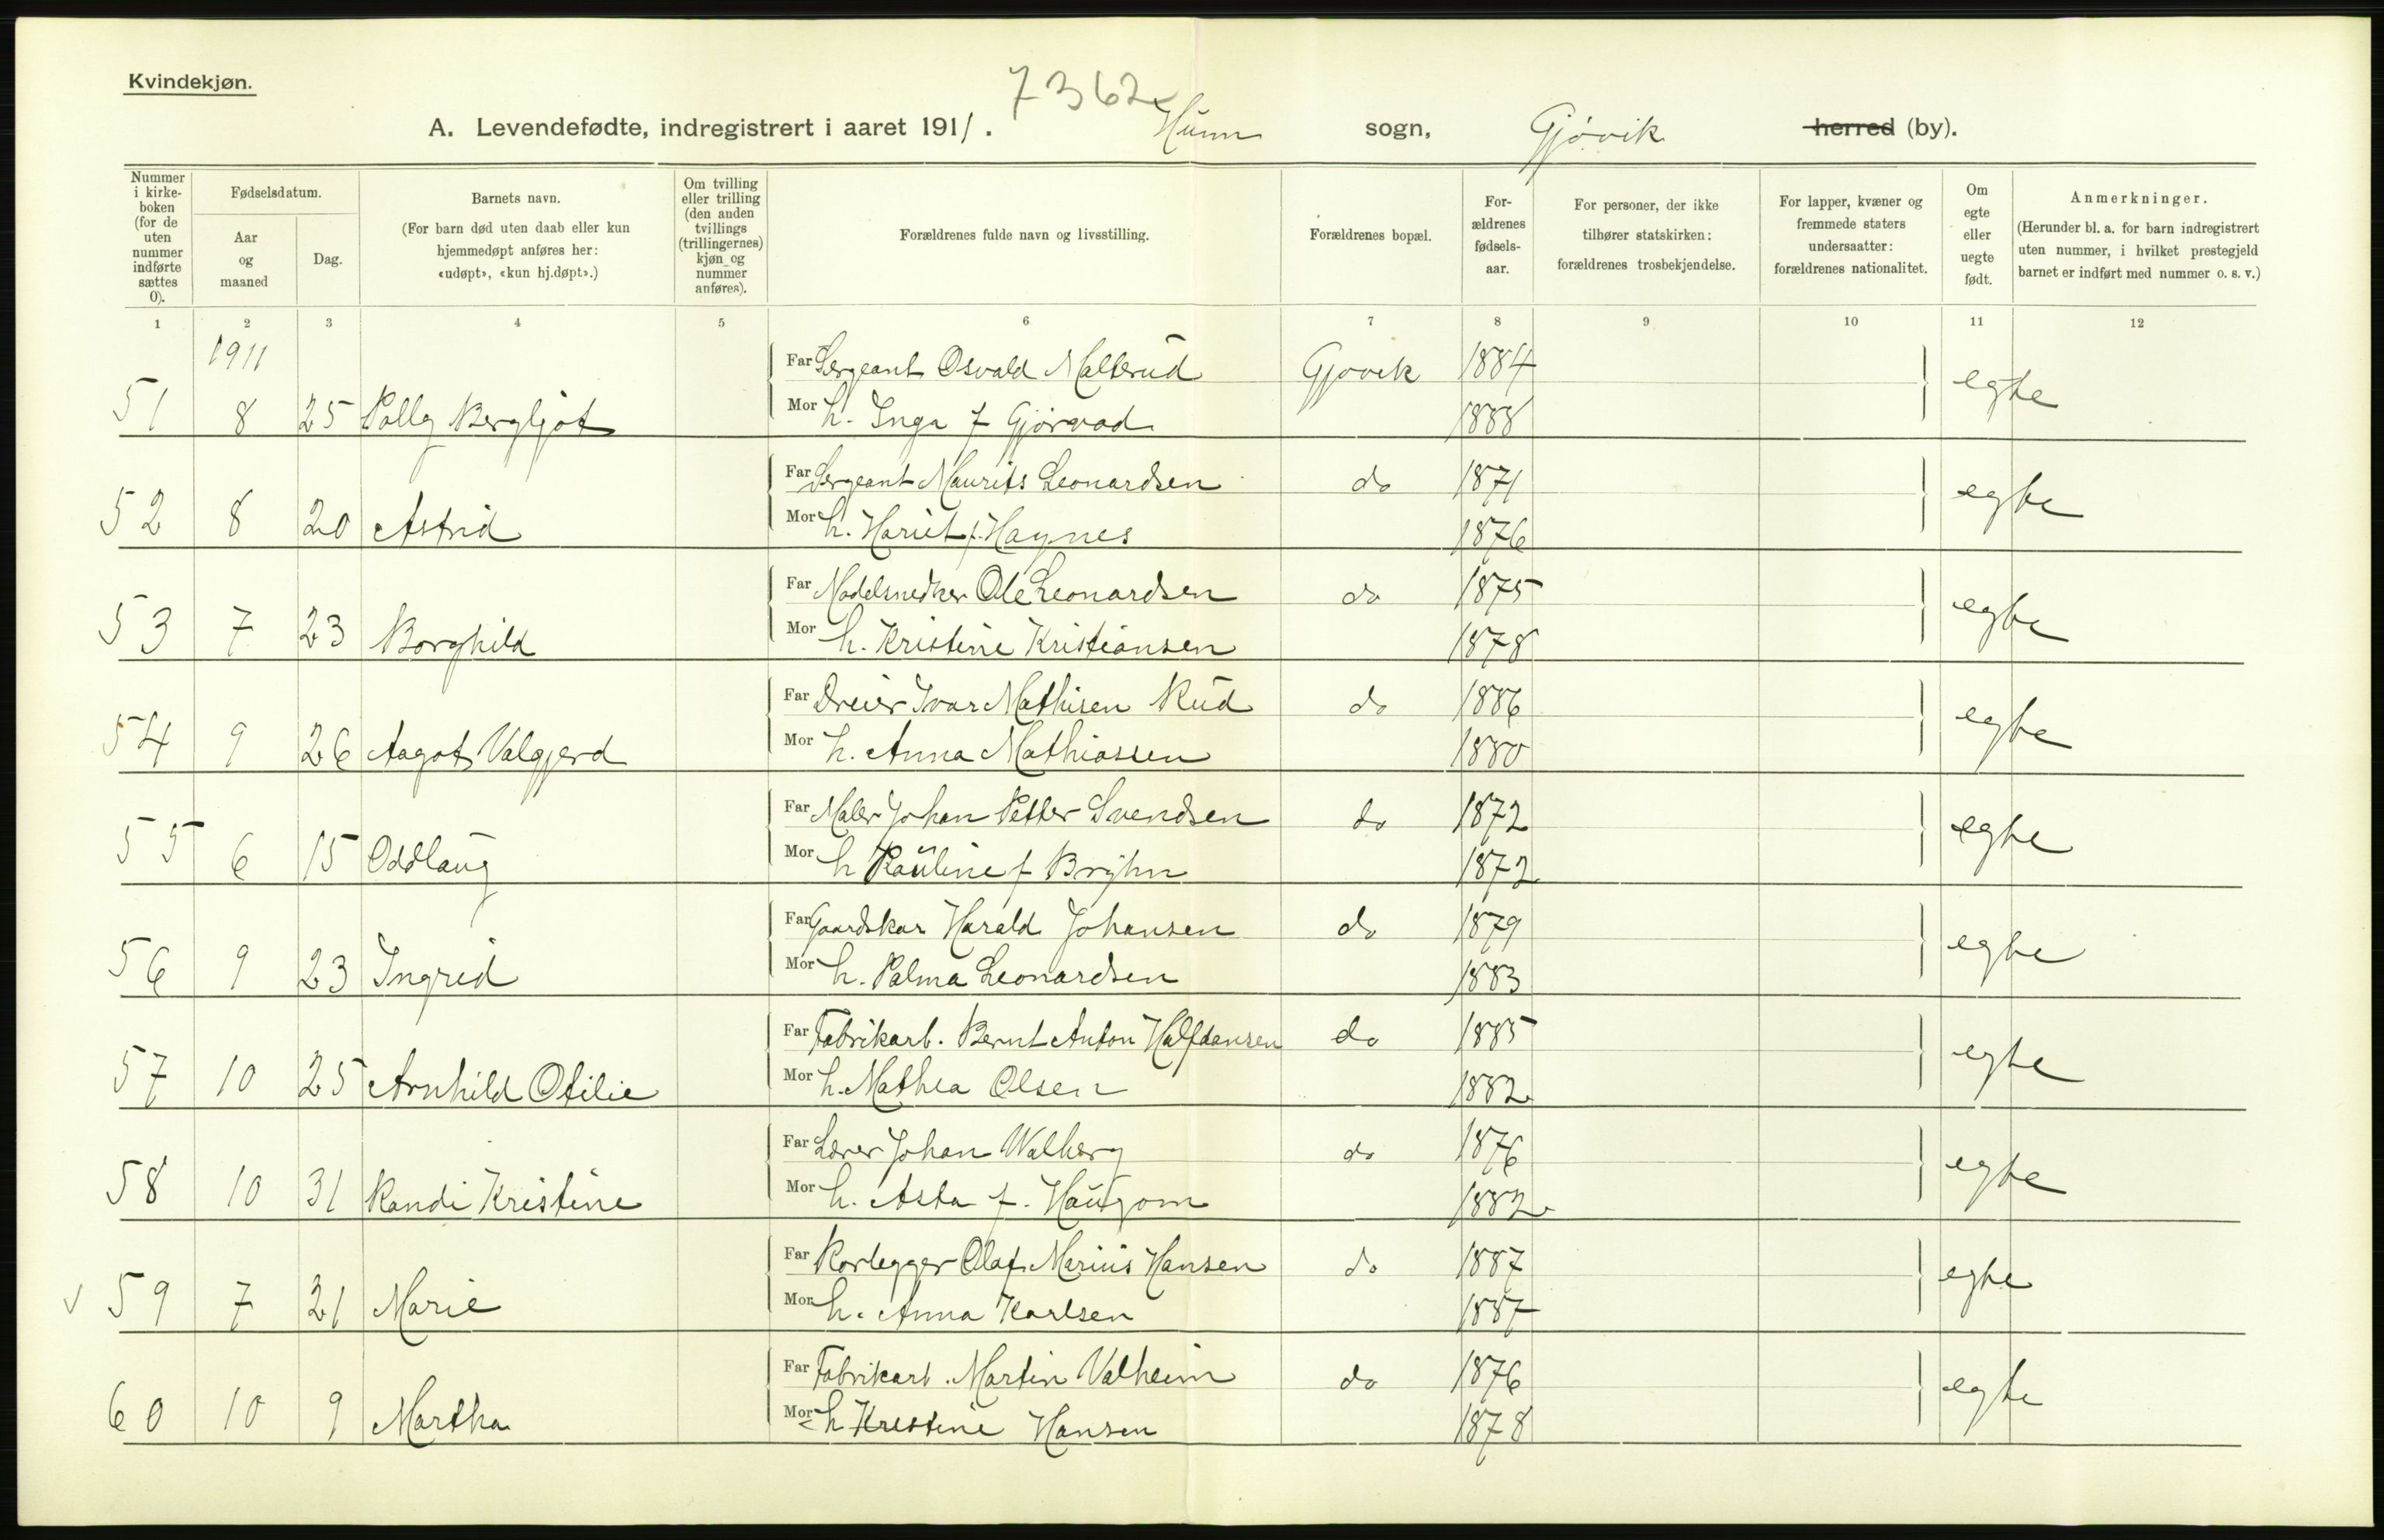 Kvindekjøn.
7362
A. Levendefødte, indregistrert i aaret 1911. Hunn sogn, Gjøvik herred (by).
Nummer i kirkeboken (for de uten nummer indførte sættes 0).
Fødselsdatum.
Aar og maaned
Dag.
Barnets navn.
(For barn død uten daab eller kun hjemmedøpt anføres her: «udøpt», «kun hj.døpt».)
Om tvilling eller trilling (den anden tvillings (trillingernes) kjøn og nummer anføres).
Forældrenes fulde navn og livsstilling.
Forældrenes bopæl.
Forældrenes fødselsaar.
For personer, der ikke tilhører statskirken: forældrenes trosbekjendelse.
For lapper, kvæner og fremmede staters undersaatter: forældrenes nationalitet.
Om egte eller uegte født.
Anmerkninger.
(Herunder bl. a. for barn indregistrert uten nummer, i hvilket prestegjeld barnet er indført med nummer o. s. v.)
1 2 3 4 5 6 7 8 9 10 11 12
1911
Far Sergeant Osvald Mallerud Gjøvik 1884
51 8 25 Polly Bergljot Mor h. Inga f Gjørvad 1888 egte
Far Sergeant Maurits Leonardsen do 1871
52 8 20 Astrid Mor h. Hariet f. Haynes 1876 egte
Far Modelsnedker Ole Leonardsen do 1875
53 7 23 Borghild Mor h. Kristine Kristiansen 1878 egte
Far Dreier Ivar Mathisen Rud do 1886
54 9 26 Aagot Valgjerd Mor h. Anna Mathiassen 1880 egte
Far Maler Johan Petter Svendsen do 1872
55 6 15 Oddlaug Mor h Pauline f Bryhn 1872 egte
Far Gaardskar Harald Johansen do 1879
56 9 23 Ingrid Mor h. Palma Leonardsen 1883 egte
Far Fabrikarb. Bernt Anton Halfdansen do 1885
57 10 25 Arnhild Otilie Mor h. Mathea Olsen 1882 egte
Far Lærer Johan Walberg do 1876
58 10 31 Randi Kristine Mor h. Asta f. Haugom 1882 egte
Far Rørlegger Olaf Marius Hansen do 1887
59 7 21 Marie Mor h. Anna Karlsen 1887 egte
Far Fabrikarb. Martin Valheim do 1876
60 10 9 Martha Mor h Kristine Hansen 1878 egte